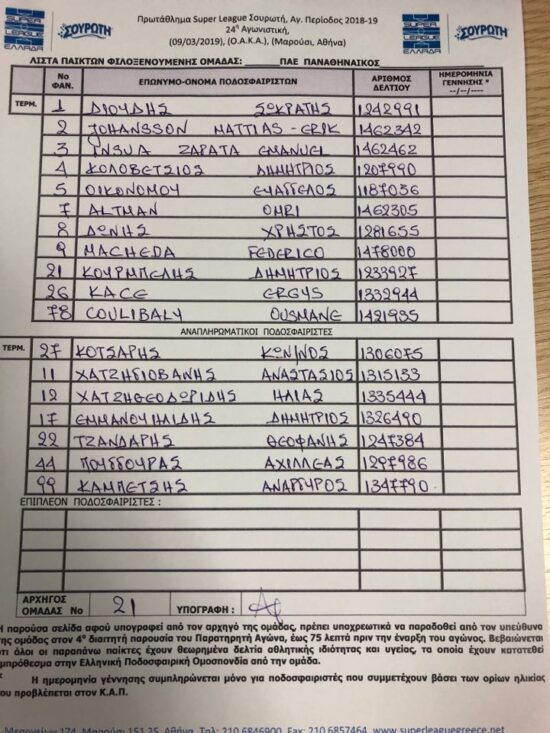 SUPER LEAGUE ΕΛΛΑΔΑ
ΣΟΥΡΩΤΗ
Πρωτάθλημα Super League Σουρωτή, Αγ. Περίοδος 2018-19
24η Αγωνιστική,
(09/03/2019), (Ο.Α.Κ.Α.), (Μαρούσι, Αθήνα)
SUPER LEAGUE ΕΛΛΑΔΑ
ΣΟΥΡΩΤΗ
ΛΙΣΤΑ ΠΑΙΚΤΩΝ ΦΙΛΟΞΕΝΟΥΜΕΝΗΣ ΟΜΑΔΑΣ: ΠΑΕ ΠΑΝΑΘΗΝΑΙΚΟΣ
Νο ΦΑΝ. ΕΠΩΝΥΜΟ-ΟΝΟΜΑ ΠΟΔΟΣΦΑΙΡΙΣΤΩΝ ΑΡΙΘΜΟΣ ΔΕΛΤΙΟΥ ΗΜΕΡΟΜΗΝΙΑ ΓΕΝΝΗΣΗΣ * --/--/----
ΤΕΡΜ. 1 ΔΙΟΥΔΗΣ ΣΩΚΡΑΤΗΣ 1242991
2 JOHANSSON MATTIAS-ERIK 1462342
3 INSUA ZAPATA EMANUEL 1462462
4 ΚΟΛΟΒΕΤΣΙΟΣ ΔΗΜΗΤΡΙΟΣ 1207990
5 ΟΙΚΟΝΟΜΟΥ ΕΥΑΓΓΕΛΟΣ 1187036
7 ALTMAN OMRI 1462305
8 ΔΩΝΗΣ ΧΡΗΣΤΟΣ 1281655
9 MACHEDA FEDERICO 1478000
21 ΚΟΥΡΜΠΕΛΗΣ ΔΗΜΗΤΡΙΟΣ 1233927
26 KACE ERGYS 1332944
78 COULIBALY OUSMANE 1421935
ΑΝΑΠΛΗΡΩΜΑΤΙΚΟΙ ΠΟΔΟΣΦΑΙΡΙΣΤΕΣ
ΤΕΡΜ. 27 ΚΟΤΣΑΡΗΣ ΚΩΝ/ΝΟΣ 1306075
11 ΧΑΤΖΗΓΙΟΒΑΝΗΣ ΑΝΑΣΤΑΣΙΟΣ 1315133
12 ΧΑΤΖΗΘΕΟΔΩΡΙΔΗΣ ΗΛΙΑΣ 1335444
17 ΕΜΜΑΝΟΥΗΛΙΔΗΣ ΔΗΜΗΤΡΙΟΣ 1326490
22 ΤΖΑΝΔΑΡΗΣ ΘΕΟΦΑΝΗΣ 1247384
44 ΠΟΥΓΓΟΥΡΑΣ ΑΧΙΛΛΕΑΣ 1297986
99 ΚΑΜΠΕΤΣΗΣ ΑΝΑΡΓΥΡΟΣ 1347790
ΕΠΙΠΛΕΟΝ ΠΟΔΟΣΦΑΙΡΙΣΤΕΣ :
ΑΡΧΗΓΟΣ ΟΜΑΔΑΣ Νο 21 ΥΠΟΓΡΑΦΗ :
Η παρούσα σελίδα αφού υπογραφεί από τον αρχηγό της ομάδας, πρέπει υποχρεωτικά να παραδοθεί από τον υπεύθυνο
της ομάδας στον 4ο διαιτητή παρουσία του Παρατηρητή Αγώνα, έως 75 λεπτά πριν την έναρξη του αγώνος. Βεβαιώνεται
ότι όλοι οι παραπάνω παίκτες έχουν θεωρημένα δελτία αθλητικής ιδιότητας και υγείας, τα οποία έχουν κατατεθεί
εμπρόθεσμα στην Ελληνική Ποδοσφαιρική Ομοσπονδία από την ομάδα.
* Η ημερομηνία γέννησης συμπληρώνεται μόνο για ποδοσφαιριστές που συμμετέχουν βάσει των ορίων ηλικίας
που προβλέπεται στον Κ.Α.Π.
Μεσογείων 174, Μαρούσι 151 25, Αθήνα, Τηλ: 210 6846900, Fax: 210 6857464, www.superleaguegreece.net